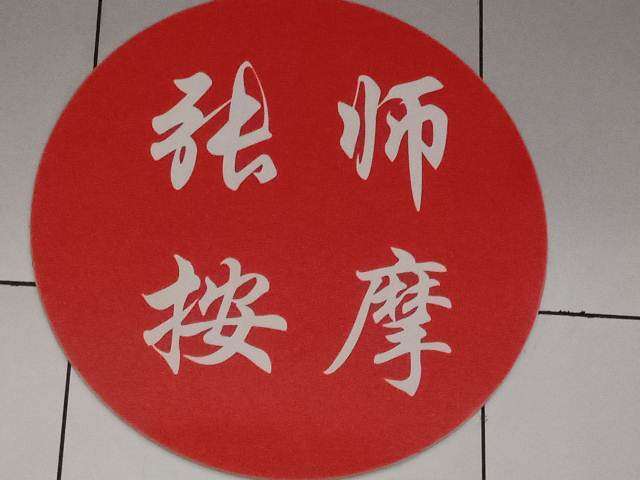 张师
按摩